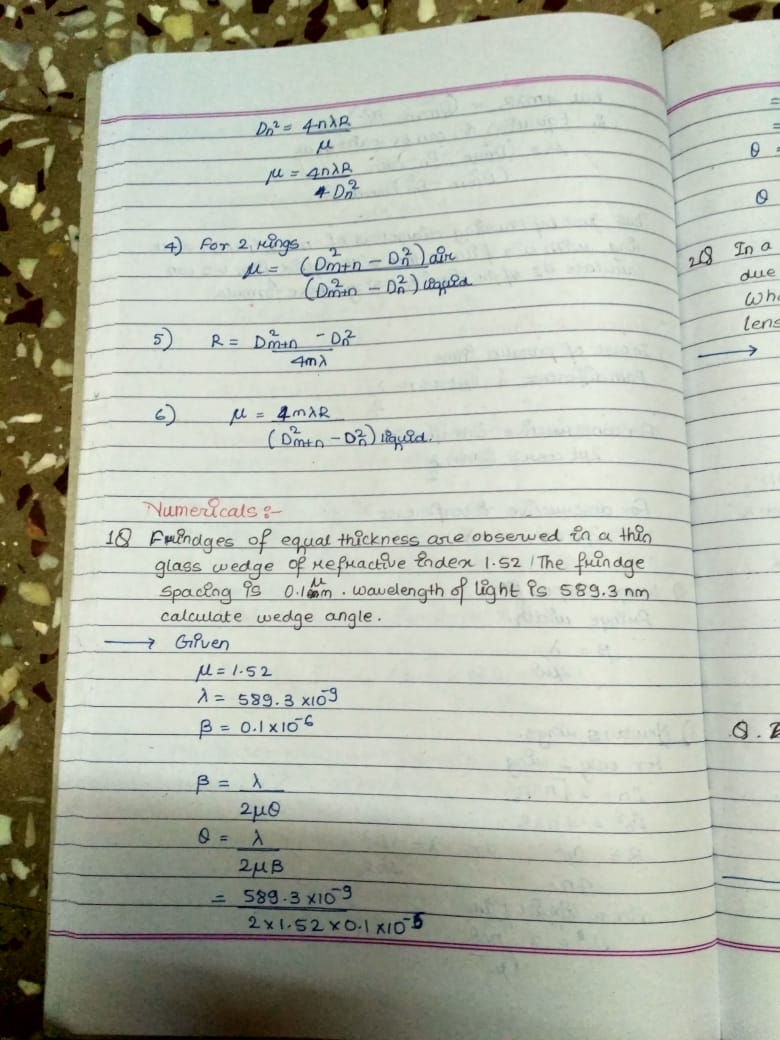 Dn² = 4nλR
μ
μ = 4nλR
Dn²
4) For 2 rings
μ = (D²m+n - D²n) air
(D²m+n - D²n) liquid
5) R = D²m+n - Dn²
4mλ
6) μ = 4mλR
(D²m+n - D²n) liquid.
Numericals :-
1Q Frindges of equal thickness are observed in a thin
glass wedge of refractive index 1.52. The frindge
spacing is 0.1 μm. wavelength of light is 589.3 nm
calculate wedge angle.
→ Given
μ = 1.52
λ = 589.3 × 10⁻⁹
β = 0.1 × 10⁻⁶
β = λ
2μθ
θ = λ
2μβ
= 589.3 × 10⁻⁹
2 × 1.52 × 0.1 × 10⁻⁶
=
=
θ =
θ
2Q In a
due
Whe
lens
→
Q.